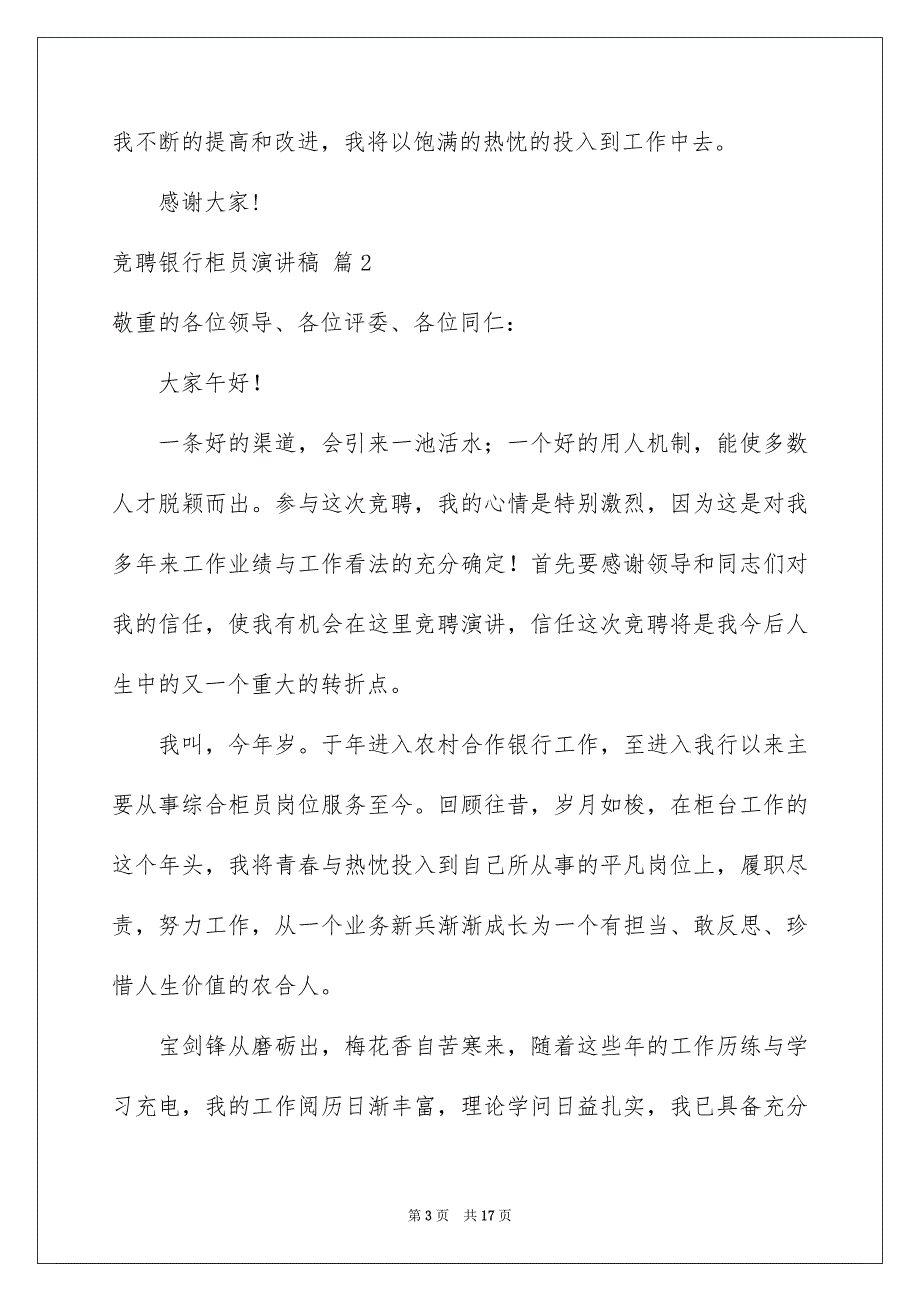 我不断的提高和改进，我将以饱满的热忱的投入到工作中去。
感谢大家！
竞聘银行柜员演讲稿 篇2
敬重的各位领导、各位评委、各位同仁：
大家午好！
一条好的渠道，会引来一池活水；一个好的用人机制，能使多数
人才脱颖而出。参与这次竞聘，我的心情是特别激烈，因为这是对我
多年来工作业绩与工作看法的充分确定！首先要感谢领导和同志们对
我的信任，使我有机会在这里竞聘演讲，信任这次竞聘将是我今后人
生中的又一个重大的转折点。
我叫，今年岁。于年进入农村合作银行工作，至进入我行以来主
要从事综合柜员岗位服务至今。回顾往昔，岁月如梭，在柜台工作的
这个年头，我将青春与热忱投入到自己所从事的平凡岗位上，履职尽
责，努力工作，从一个业务新兵渐渐成长为一个有担当、敢反思、珍
惜人生价值的农合人。
宝剑锋从磨砺出，梅花香自苦寒来，随着这些年的工作历练与学
习充电，我的工作阅历日渐丰富，理论学问日益扎实，我已具备充分
第 3 页 共 17 页